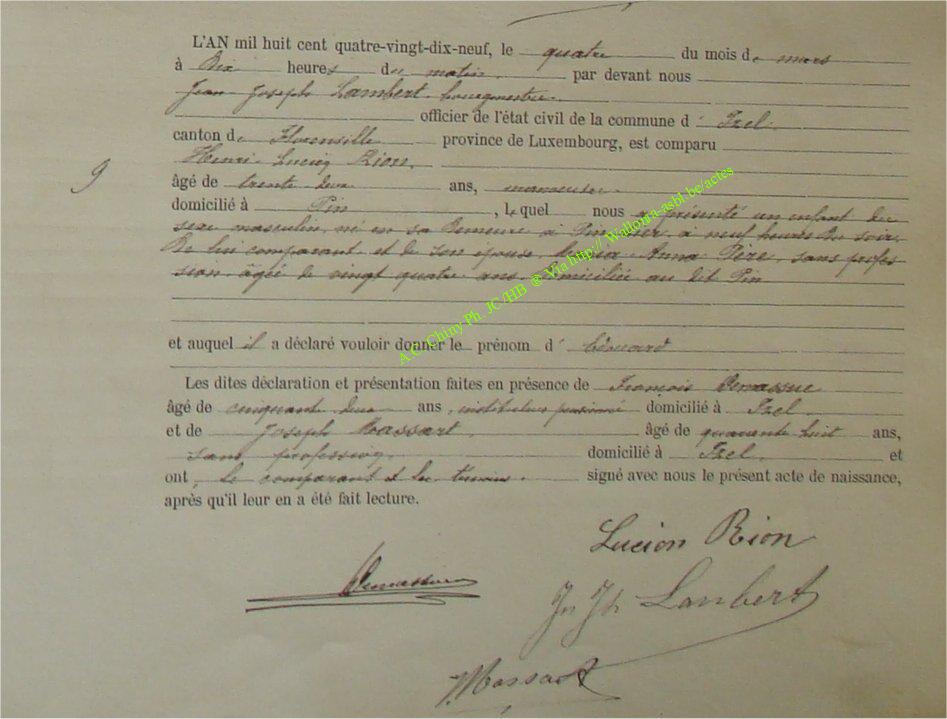 L'AN mil huit cent quatre-vingt-dix-neuf, le quatre du mois de mars
à Dix heures du matin par devant nous
Jean Joseph Lambert bourgmestre
officier de l'état civil de la commune d' Izel
canton de Florenville province de Luxembourg, est comparu
Henri Lucien Rion,
9
âgé de trente deux ans, manoeuvre
domicilié à Pin, lequel nous a présenté un enfant du
sexe masculin, né en sa demeure à Pin hier, à neuf heures du soir,
De lui comparant et de son épouse, Maria Anna Père, sans profes-
sion, agée de vingt quatre ans, domiciliée au dit Pin
et auquel il a déclaré vouloir donner le prénom d' Edouard
Les dites déclaration et présentation faites en présence de François Demassue
âgé de cinquant deux ans, instituteur pensionné domicilié à Izel
et de Joseph Massart, âgé de quarante huit ans,
sans profession, domicilié à Izel et
ont, le comparant et les témoins signé avec nous le présent acte de naissance,
après qu'il leur en a été fait lecture.
Lucien Rion
Demassue
Jn Jh Lambert
J Massart
A.C. Chiny Ph. JC /HB @ Via http:// Wallonia-asbl.be/actes